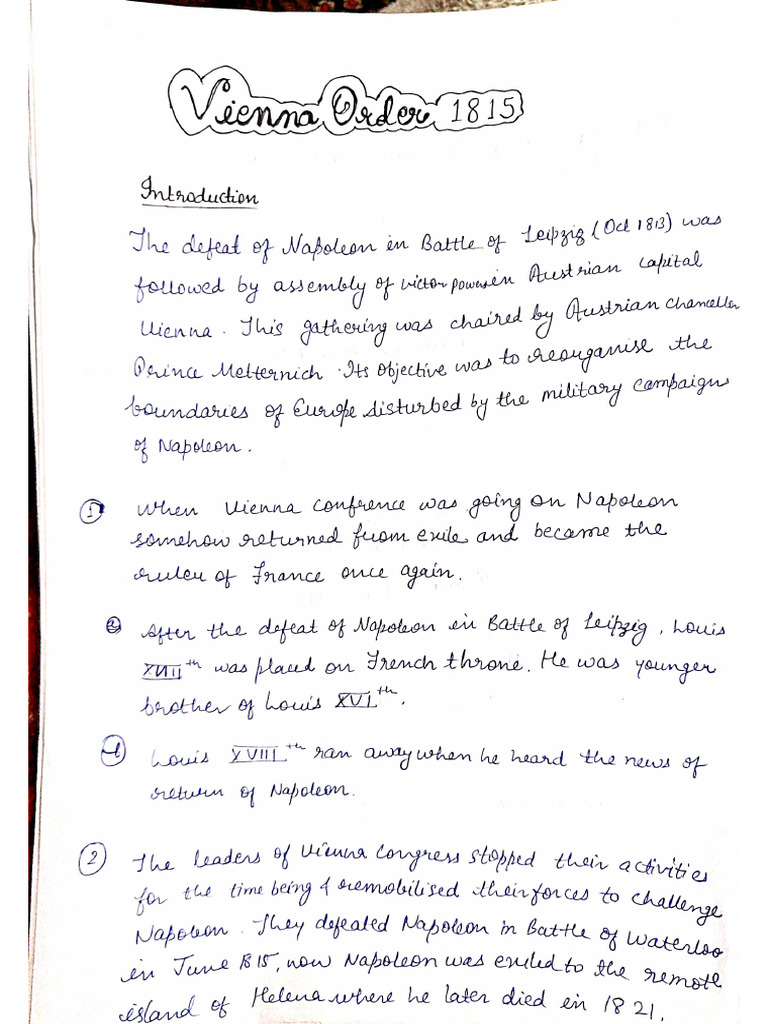 Vienna Order 1815
Introduction
The defeat of Napoleon in Battle of Leipzig (Oct 1813) was
followed by assembly of victor powers in Austrian capital
Vienna. This gathering was chaired by Austrian Chancellor
Prince Metternich. Its objective was to reorganise the
boundaries of Europe disturbed by the military campaigns
of Napoleon.
① When Vienna Confrence was going on Napoleon
somehow returned from exile and became the
ruler of France once again.
After the defeat of Napoleon in Battle of Leipzig, Louis
XVIIIth was placed on French throne. He was younger
brother of Louis XVIth.
Louis XVIIIth ran away when he heard the news of
return of Napoleon.
② The leaders of Vienna Congress stopped their activities
for the time being & remobilised their forces to challenge
Napoleon. They defeated Napoleon in Battle of Waterloo
in June 1815, now Napoleon was exiled to the remote
island of Helena where he later died in 1821.